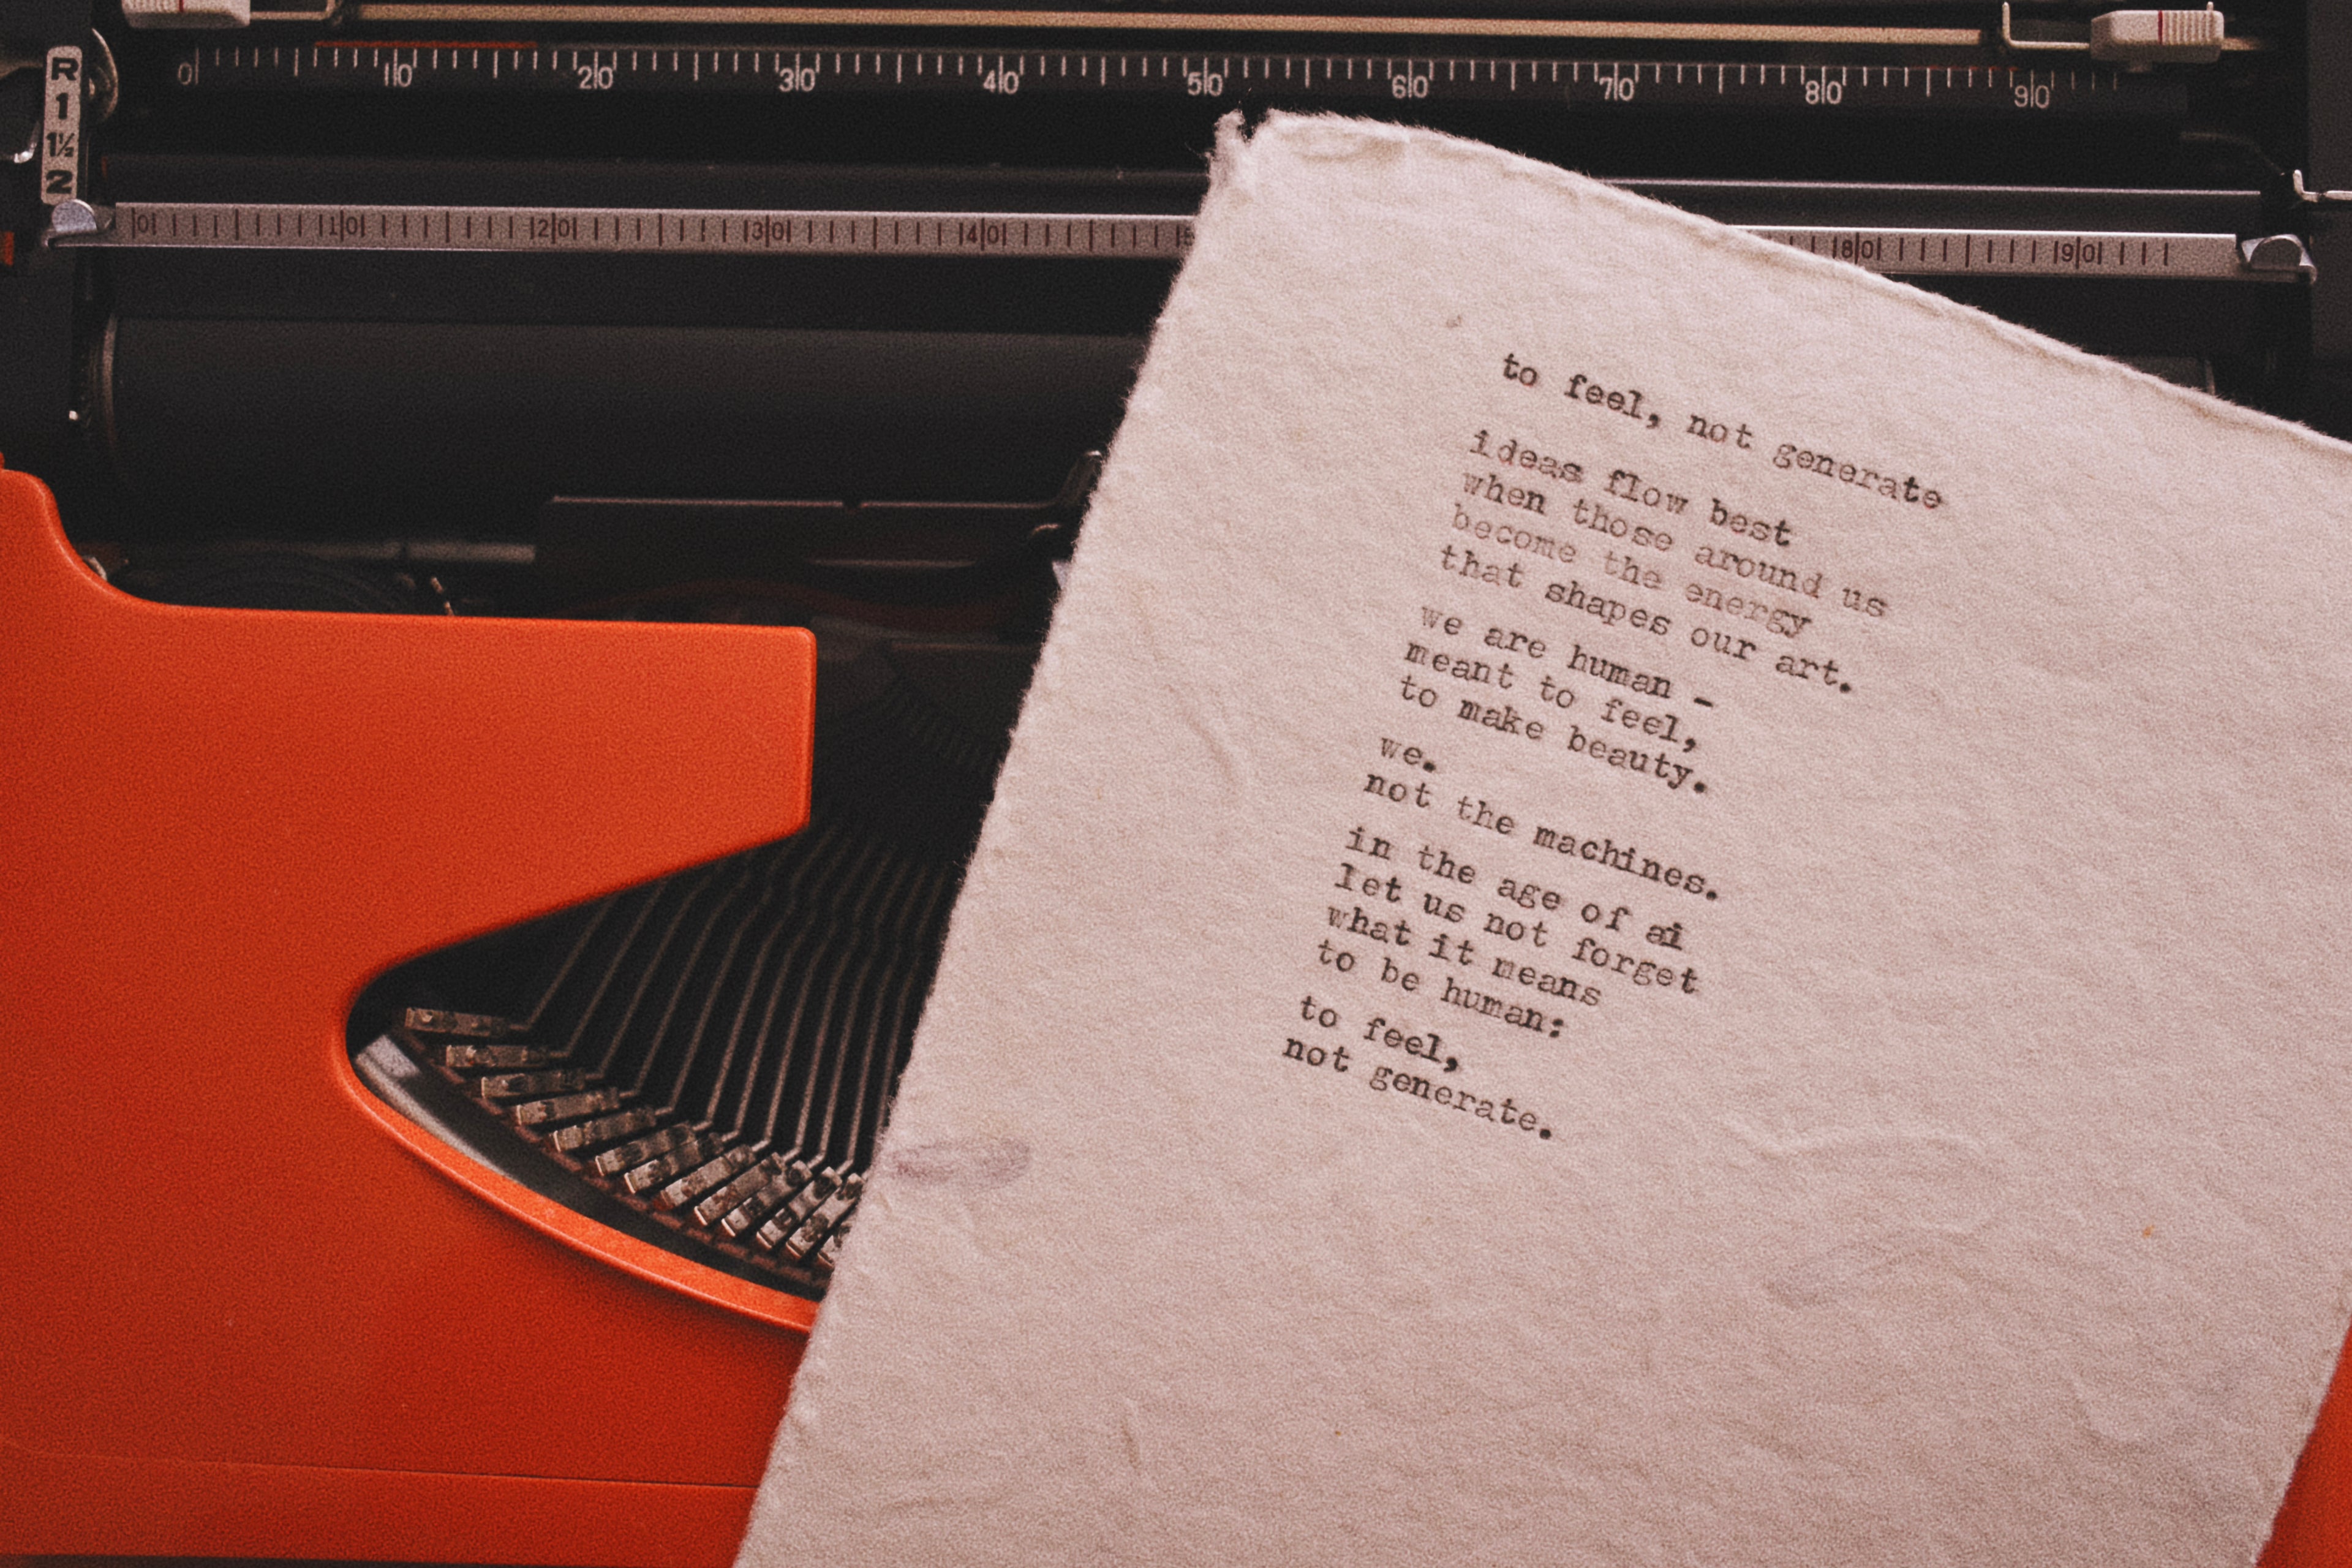 0 10 20 30 40 50 60 70 80 90
R
1
1½
2
0 10 20 30 40 5 80 90
to feel, not generate
ideas flow best
when those around us
become the energy
that shapes our art.
we are human -
meant to feel,
to make beauty.
we.
not the machines.
in the age of ai
let us not forget
what it means
to be human:
to feel,
not generate.